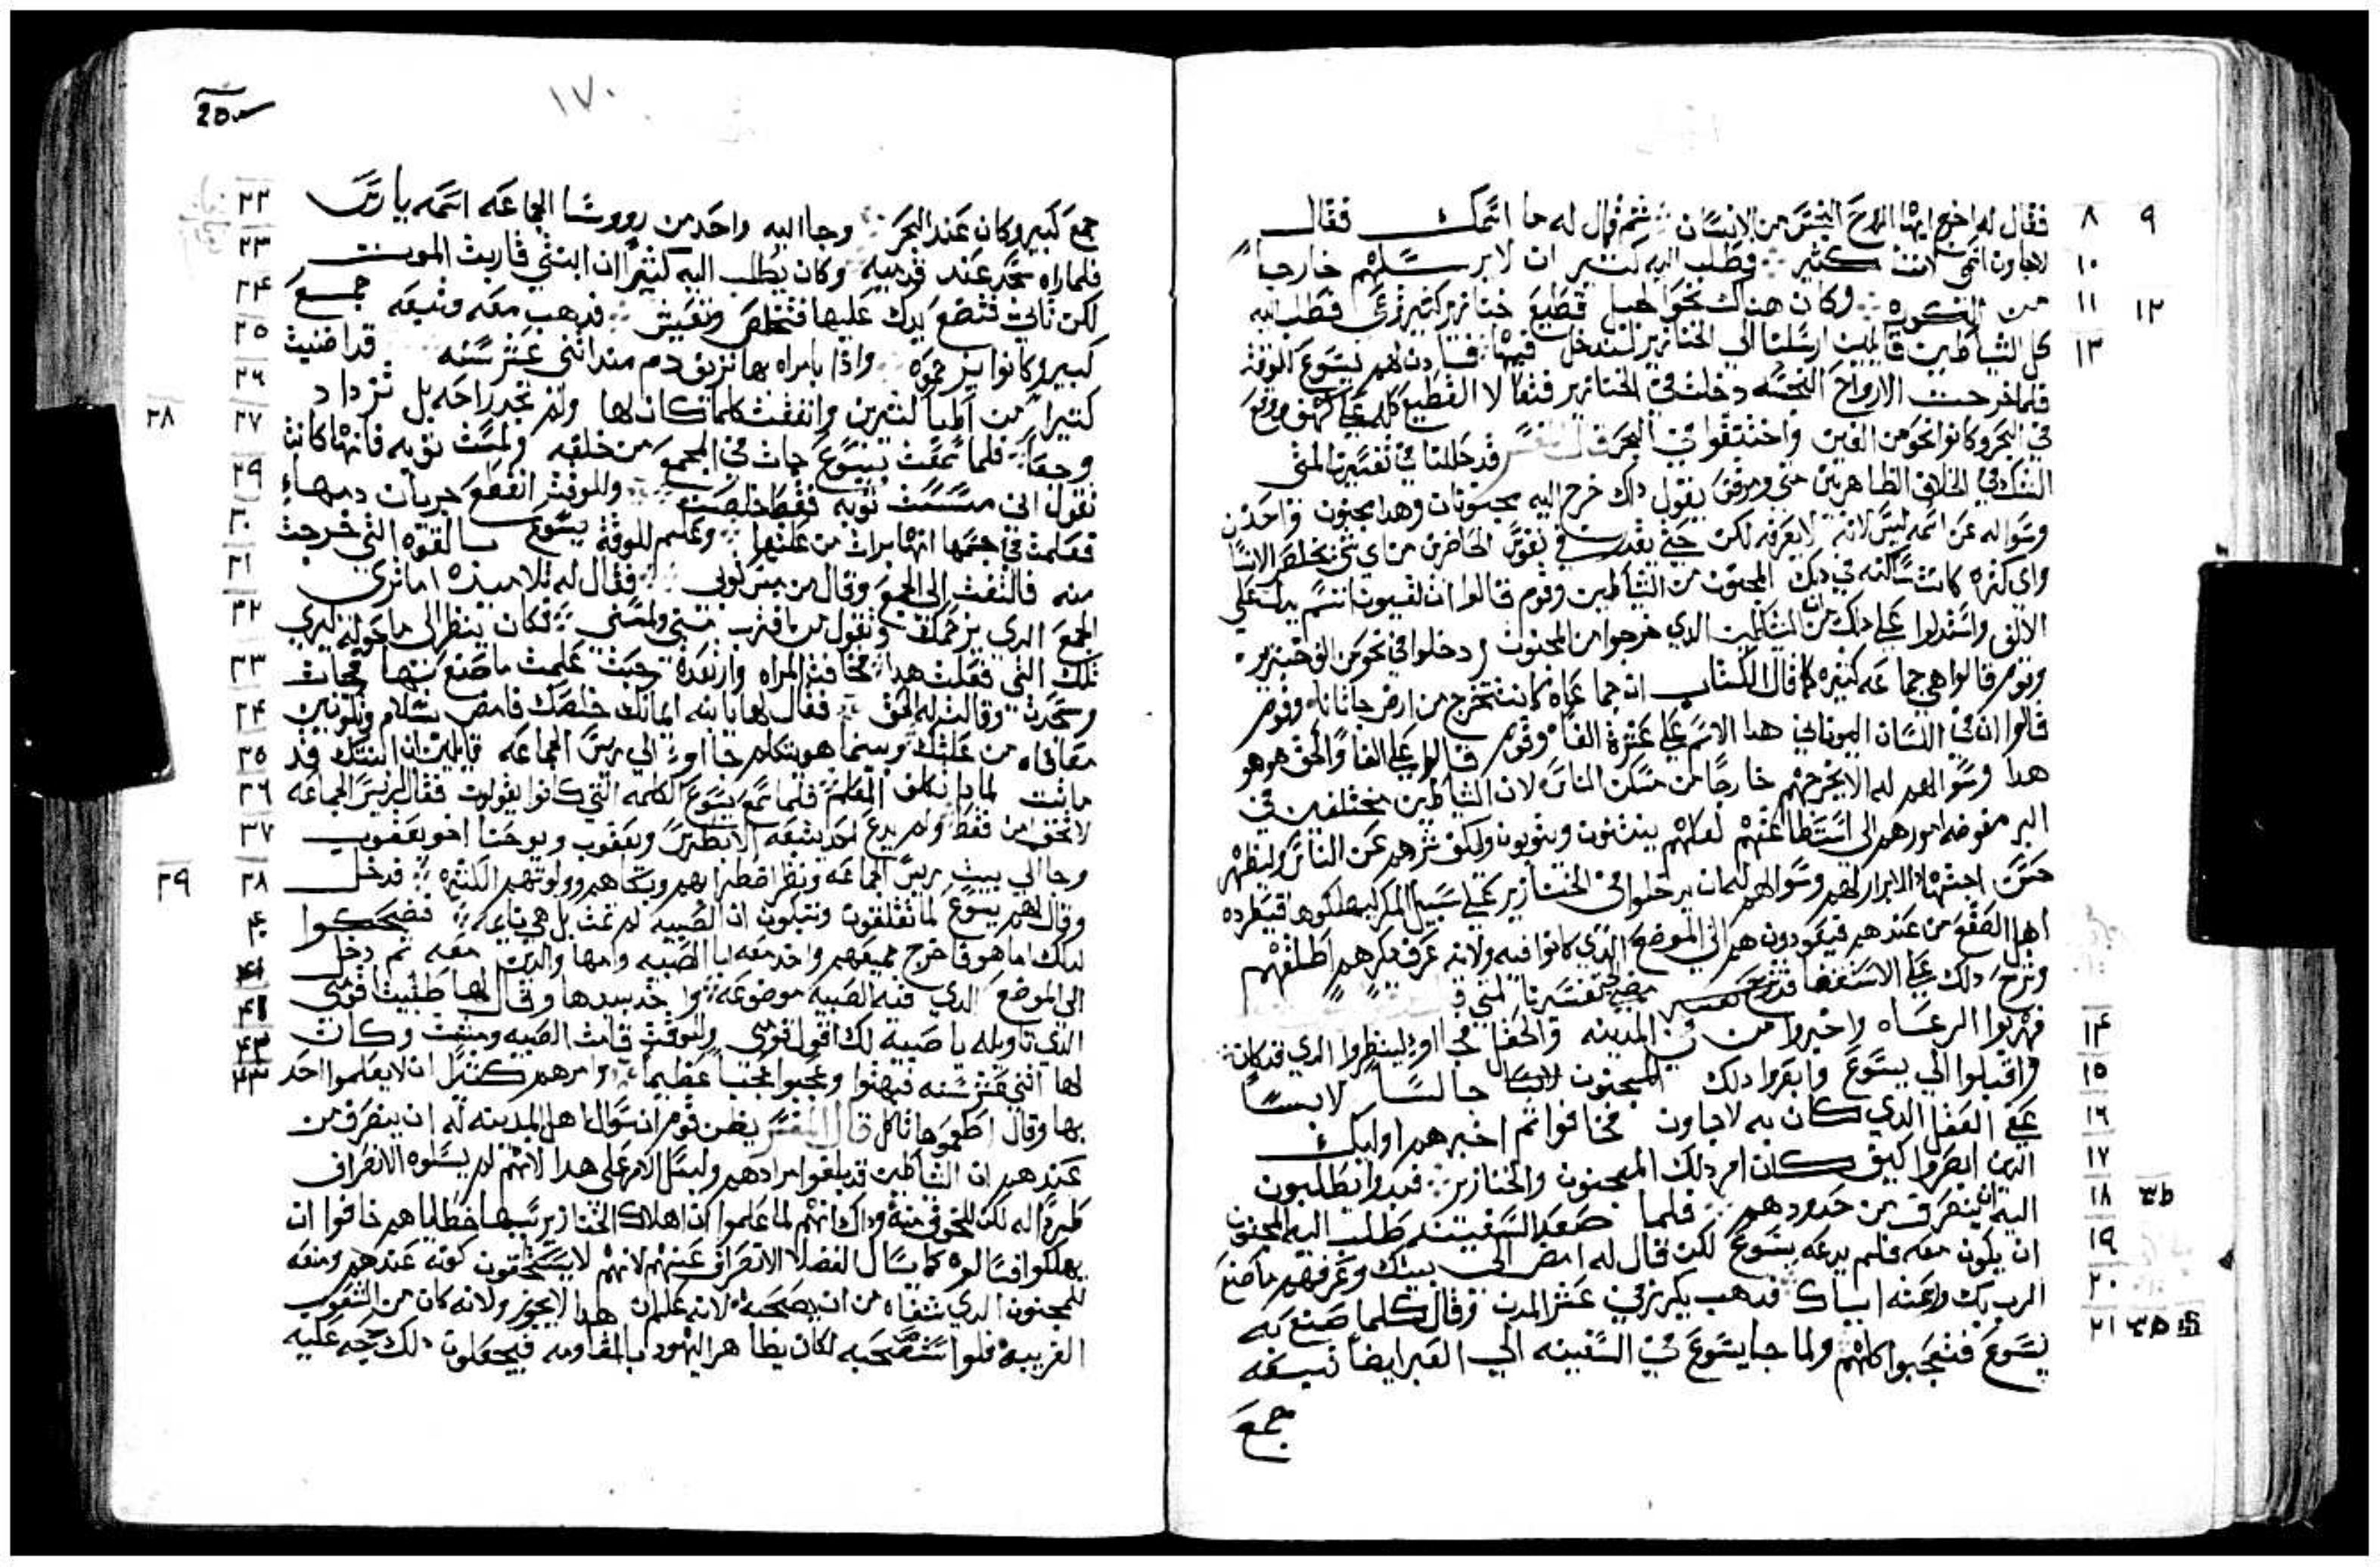 ٩ ٨ فقال له اخرج ايها الروح النجس من الانسان ثم قال له ما اسمك فقال
١٠ لاجاون اسمي لاننا كثير فطلب اليه كثير ان لا يرسلهم خارجا
١٢ ١١ من الكوره وكان هناك نحو الجبل قطيع خنازير كثير ترعى فطلب اليه
١٣ كل الشياطين قايلين ارسلنا الي الخنازير لندخل فيها فادن لهم يسوع للوقت
فلما خرجت الارواح النجسه دخلت في الخنازير فتعالا القطيع كله على كهف ووقع
في البحر وكانوا نحو من الفين واختنقوا في البحر قد حللنا في تفسيرنا لمتى
الشك في الخلاف الظاهر بين متى ومرقس بقول داك خرج اليه مجنونان وهدا مجنون واحد
وسواله عن اسمه ليس لانه لا يعرفه لكن حتي يقدر في نفوس الحاضرين من اي شي يخلص الانسان
واي كثره كانت ساكنه في دلك المجنون من الشياطين وقوم قالوا ان لغيون اسم يدل على
الالف واستدلوا على دلك من ان الشياطين الدي خرجوا من المجنون دخلوا في نحو من الفي خنزير
وقوم قالوا هي جماعه كثيره كما قال الكتاب ان جماعاه كانت تخرج من ارض وقوم
قالوا انه في اللسان اليوناني هدا الاسم على عشرة الفا وقوم قالوا على الفا والحق هو هو
هدا وسوالهم له الا يخرجهم خارجا من مسكن الناس لان الشياطين مختلفين في
البر مفوضه امورهم الى استطاعتهم لعلهم ينتنون ويتوبون ولكن نزهم عن الناس وليظهر
حسن اجتهاد الابرار لهم وسوالهم ليمان يدخلوا في الخنازير على سبيل المكر ليهلكوها فيطرده
اهل الصقع من عندهم فيعودون هم الى الموضع الدي كانوا فيه ولانه عرف مكرهم اطلقهم
وشرح دلك على الاستقصا قد شرح في تفسيرنا لمتى
١٤ فهربوا الرعاه واخبروا من في المدينه والحقل فجااوا لينظروا الدي قد كان
١٥ واقبلوا الي يسوع وابصروا دلك المجنون جالسا لابسا
١٦ عفي العقل الدي كان به لاجاون فخافوا ثم اخبرهم اوليك
١٧ الدين ابصروا كيف كان امر دلك المجنون والخنازير فبدوا يطلبون
١٨ اليه ان ينصرف من حدودهم فلما صعد السفينه طلب اليه المجنون
١٩ ان يكون معه فلم يدعه يسوع لكن قال له امض الى بيتك وعرفهم ما صنع
٢٠ الرب بك ورحمته اياك فدهب يكرز في عشر المدن وقال كلما صنع به
٢١ يسوع فتعجبوا كلهم ولما جا يسوع في السفينه الي العبر ايضا تبعه
جمع
١٧٠
٢٢ جمع كبير وكان عند البحر وجا اليه واحد من رووسا الجماعه اسمه يارس
٢٣ فلما راه سجد عند قدميه وكان يطلب اليه كثيرا ان ابنتي قاربت الموت
٢٤ لكن تاتي فتضع يدك عليها فتخلص وتعيش فدهب معه وتبعه جمع
٢٥ كبير وكانوا يزحموه وادا بامراه بها نزيف دم مند اثني عشر سنه قد اضنيت
٢٦ كثيرا من اطبا كثيرين وانفقت كلما كان لها ولم تجد راحه بل تزداد
٢٨ ٢٧ وجعا فلما سمعت بيسوع جات في الجمع من خلفه ولمست ثوبه فانها كانت
٢٩ تقول اني مسست ثوبه فقط خلصت وللوقت انقطع جريان دمها
٣٠ فعلمت في جسمها انها برات من علتها وعلم للوقت يسوع بالقوه التي خرجت
٣١ منه فالتفت الى الجمع وقال من مس ثوبي فقال له تلاميذه اما ترى
٣٢ الجمع الدي يزحمك وتقول من مني ولمسني فكان ينظر الى ما حوله ليرى
٣٣ تلك التي فعلت هدا فخافت المراه وارتعدة حيث علمت ما صنع بها فجات
٣٤ وسجدت وقالت له الحق فقال لها يا ابنه ايمانك خلصك فامض بسلام وتكونين
٣٥ معافاه من علتك وبينما هو يتكلم جااوا الي ريس الجماعه قايلين ان ابنتك قد
٣٦ ماتت لمادا تكلف المعلم فلما سمع يسوع الكلمه التي كانوا يقولون فقال لريس الجماعه
٣٧ لا تخف امن فقط ولم يدع احد يتبعه الا بطرس ويعقوب ويوحنا اخو يعقوب
٣٩ ٣٨ وجا الي بيت ريس الجماعه ونظر اضطرابهم وبكاهم وولولتهم الكثيره فدخل
٤٠ وقال لهم يسوع لما تقلقون وتبكون ان الصبيه لم تمت بل هي نايمه فضحكوا
لدلك اما هو فاخرج جميعهم واخد معه ابا الصبيه وامها والدين معه ثم دخل
٤١ الى الموضع الدي فيه الصبيه موضوعه واخد بيدها وقال لها طليثا قومي
الدي تاويله يا صبيه لك اقول قومي وللوقت قامت الصبيه ومشت وكان
لها اثني عشر سنه فبهتوا وعجبوا عجبا عظيما وامرهم كثيرا ان لا يعلموا احد
بها وقال اطعموها تاكل قال المفسر يظن قوم ان سوال اهل المدينه له ان ينصرف من
عندهم ان الشياطين قد بلغوا مرادهم وليس الامر على هدا لانهم لم يسلوه الانصراف
طردا له لكن للخوف منه وداك انهم لما علموا ان اهلاك الخنازير بسبب خطاياهم خافوا ان
يهلكوا فسالوه كما يسال الفضلا الانصراف عنهم لانهم لا يستحقون كونه عندهم ومنعه
للمجنون الدي شفاه من ان يصحبه لانه علم ان هدا لا يجوز ولانه كان من الشعوب
الغريبه فلو استصحبه لكان يظاهر اليهود بالمقاومه فيجعلون دلك حجه عليه